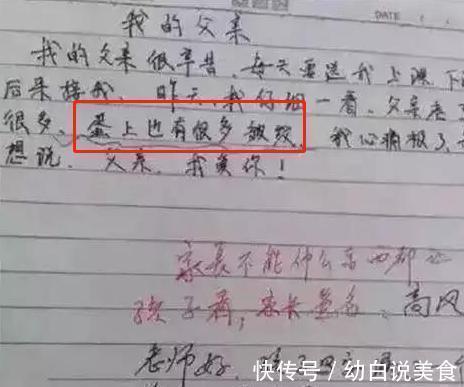 我的父亲
DATE
我的父亲很辛苦，每天要送我上课下
后来接我。昨天，我仔细一看，父亲老了
很多，蛋上也有很多皱纹，我心痛极了，
想说，父亲，我爱你！
家长不能什么东西都让
孩子看，家长签名：高风
老师好，
快传号 / 幼白说美食